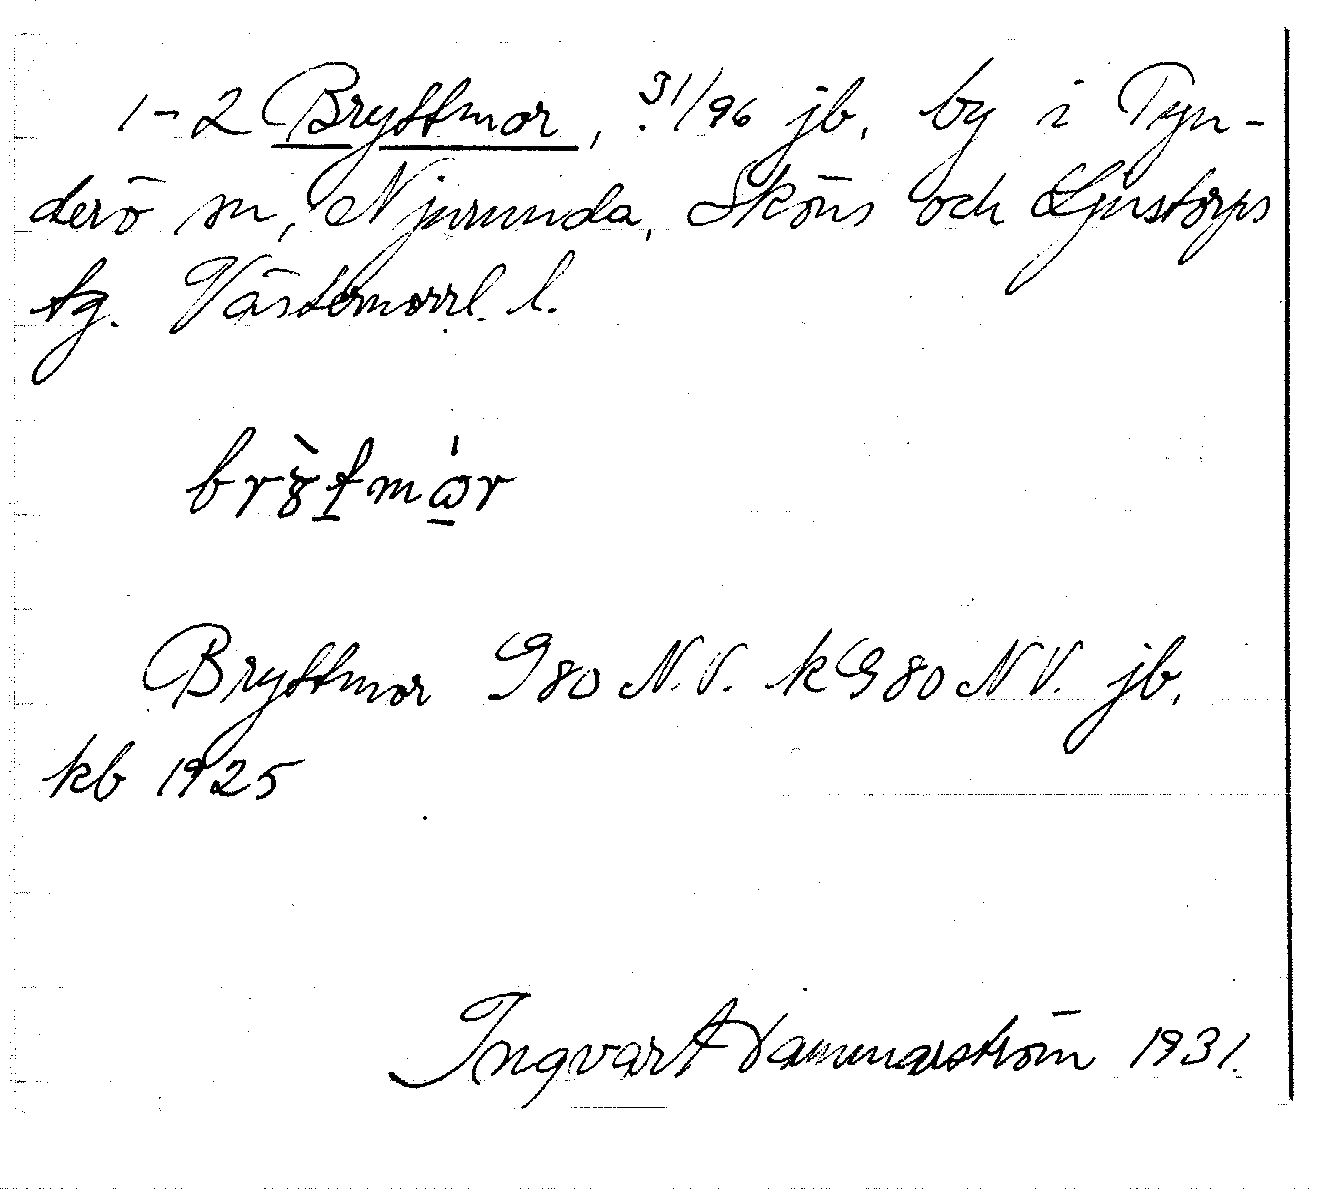 1-2 Bryttmor, 31/96 jb. by i Tyn-
derö sn, Njurunda, Sköns och Ljustorps
tg. Västernorrl. l.
Bryttmor G80 N.V. k G80 N V. jb.
kb 1925
Ingvart Hammarström 1931.